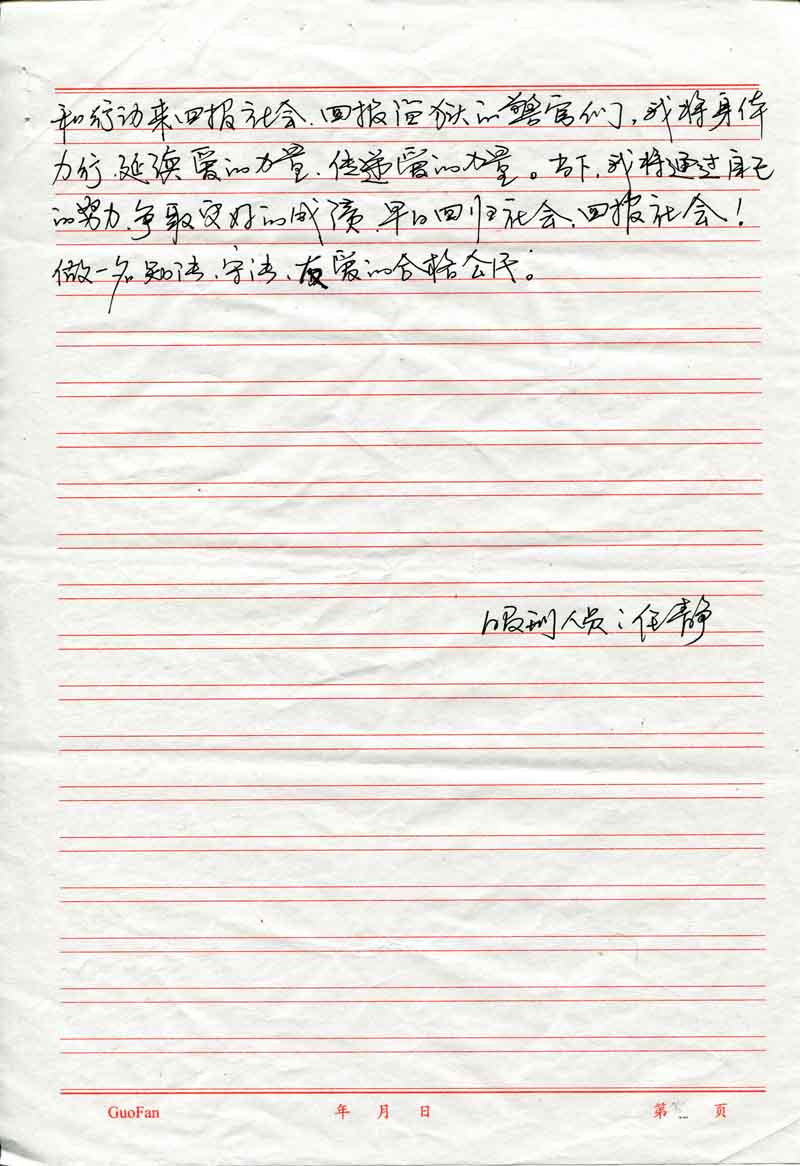 和行动来回报社会、回报监狱的警官们，我将身体
力行、延续爱的力量、传递爱的力量。当下、我将通过自己
的努力、争取更好的成绩、早日回归社会、回报社会！
做一名知法、守法、友爱的合格公民。
服刑人员：任静
GuoFan 年 月 日 第 页